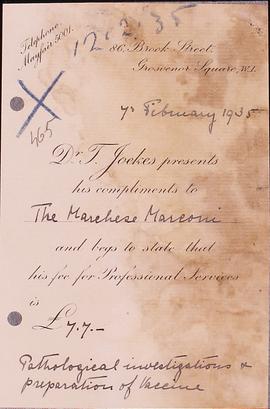 Telephone
Mayfair 5001.
12.2.35
86, Brook Street,
Grosvenor Square, W.1.
465
7th February 1935
Dr. T. Joekes presents
his compliments to
The Marchese Marconi
and begs to state that
his fee for Professional Services
is
£7.7-
Pathological investigations &
preparation of Vaccine